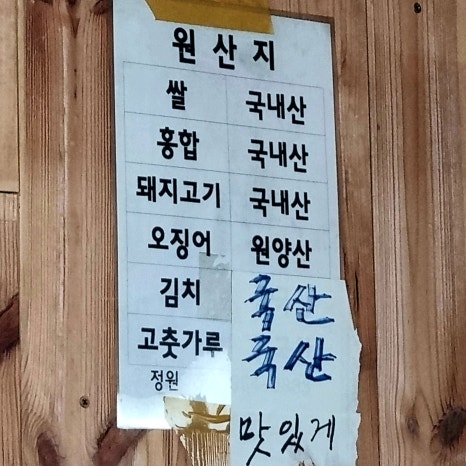 원산지
쌀 국내산
홍합 국내산
돼지고기 국내산
오징어 원양산
김치 국산
고춧가루 국산
정원
맛있게